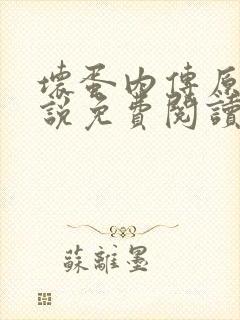 壞蛋內傳原
說免費閱讀
蘇離墨